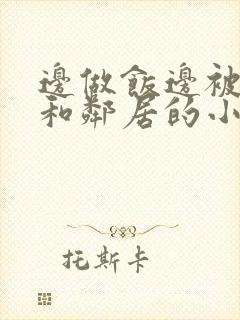 邊做飯邊被
和鄰居的小
托斯卡